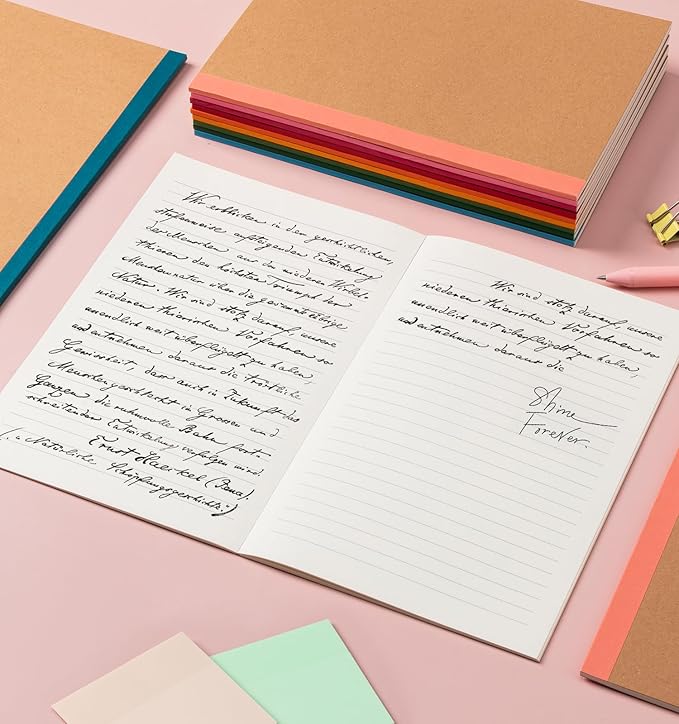 Wir erblicken in den geschichtlichen
stufenweise aufsteigenden Entwickelung
des Menschen aus den niederen Wirbel-
thieren den höchsten Triumph der
Menschennatur über die gesammte übrige
Natur. Wir sind stolz darauf, unsere
niederen thierischen Vorfahren so
unendlich weit überflügelt zu haben,
und entnehmen daraus die tröstliche
Gewissheit, dass auch in Zukunft das
Menschengeschlecht im Grossen und
Ganzen die ruhmvolle Bahn fort-
schreitender Entwickelung verfolgen wird
Ernst Haeckel (Jena)
(„Natürliche Schöpfungsgeschichte")
Wir sind stolz darauf, unsere
niederen thierischen Vorfahren so
unendlich weit überflügelt zu haben,
und entnehmen daraus die
Shine
Forever.